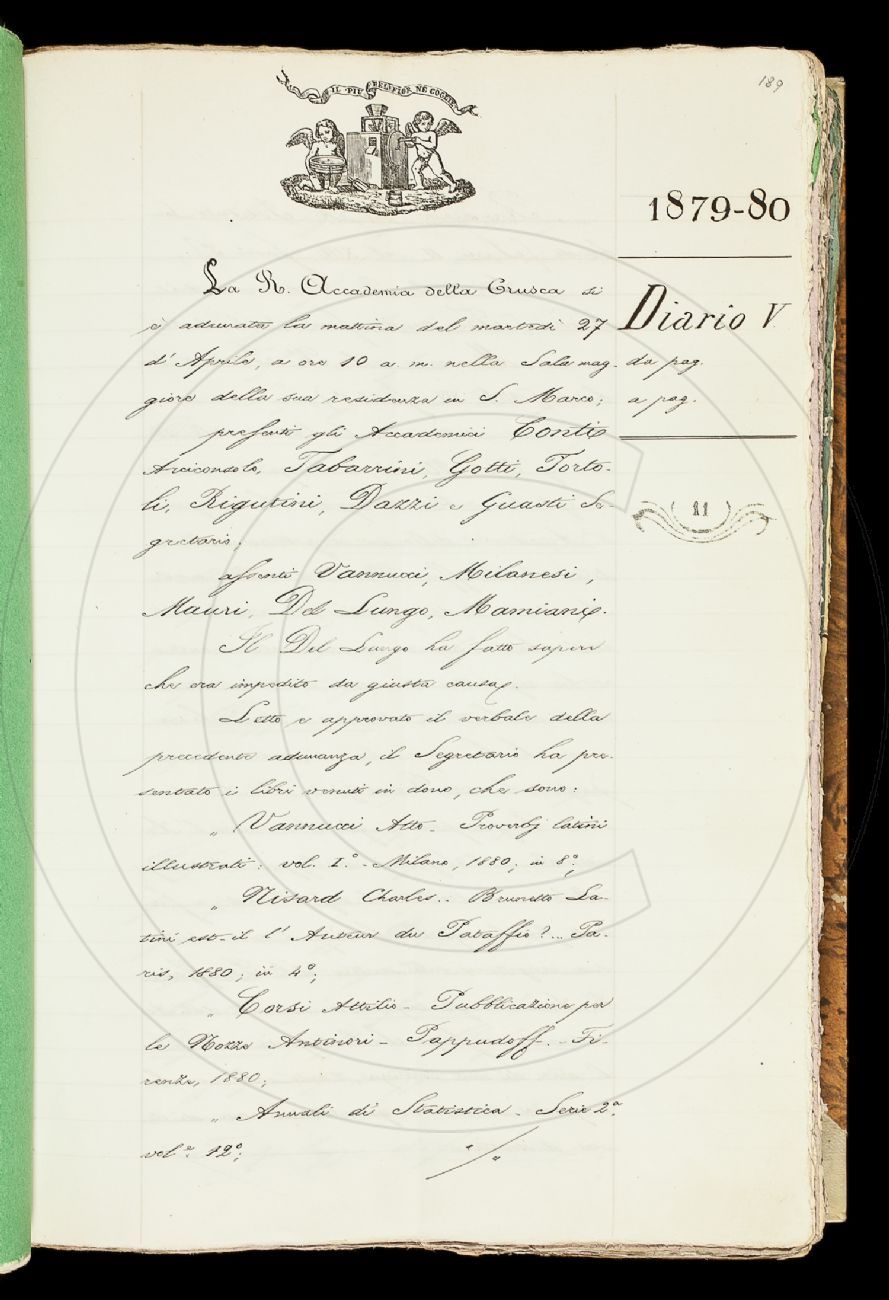 189
IL PIÙ BEL FIOR NE COGLIE
1879-80
Diario V
da pag.
a pag.
11
La R. Accademia della Crusca si
è adunata la mattina del martedì 27
d'Aprile, a ore 10 a. m. nella Sala mag-
giore della sua residenza in S. Marco;
presenti gli Accademici Conti
Arciconsolo, Tabarrini, Gotti, Torto-
li, Rigutini, Dazzi e Guasti Se-
gretario;
assenti Vannucci, Milanesi,
Mauri, Del Lungo, Mamiani.
Il Del Lungo ha fatto sapere
che era impedito da giusta causa.
Letto e approvato il verbale della
precedente adunanza, il Segretario ha pre-
sentato i libri venuti in dono, che sono:
" Vannucci Atto - Proverbj latini
illustrati: vol. I.° - Milano, 1880; in 8°;
" Nisard Charles.. Brunetto La-
tini est-il l'Auteur du Pataffio?... Pa-
ris, 1880; in 4°;
" Corsi Attilio - Pubblicazione per
le Nozze Antinori - Pappudoff. - Fi-
renze, 1880;
" Annali di Statistica - Serie 2a
vol.e 12°;
"/"